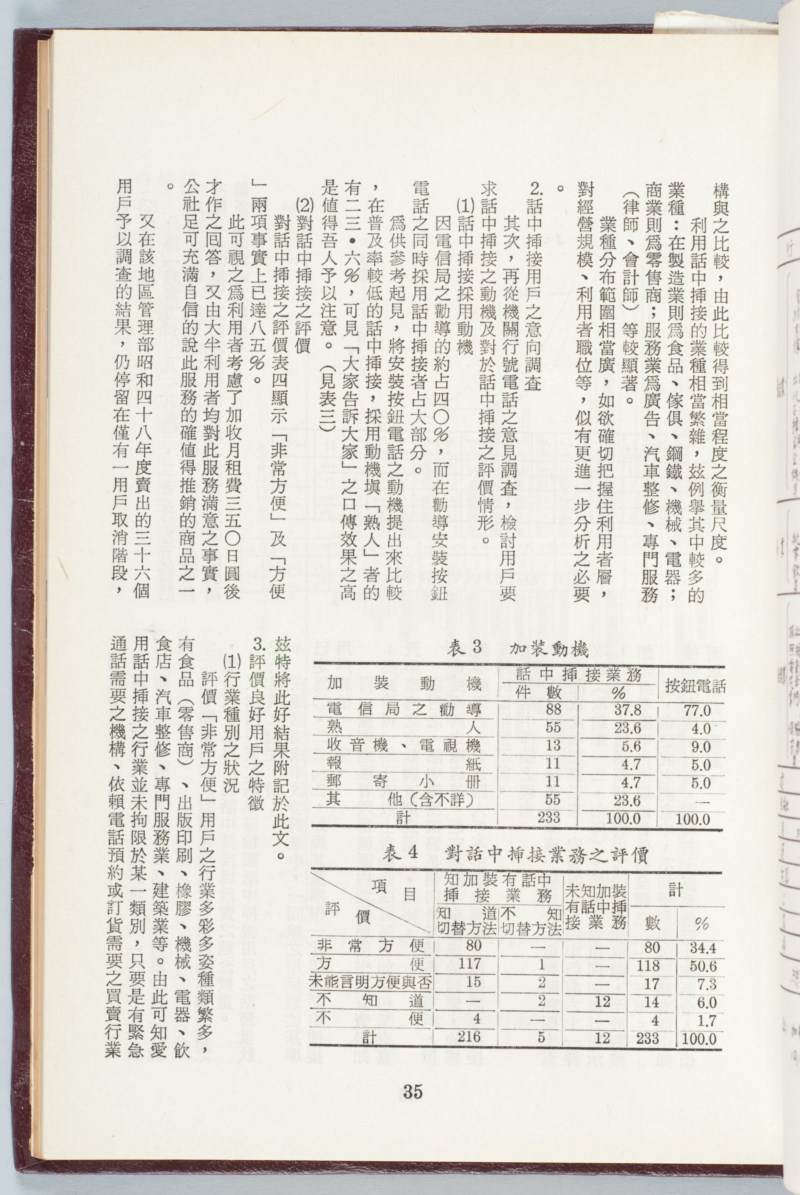 構與之比較，由此比較得到相當程度之衡量尺度。
利用話中插接的業種相當繁雜，玆例舉其中較多的
業種：在製造業則爲食品、傢俱、鋼鐵、機械、電器；
商業則爲零售商；服務業爲廣告、汽車整修、專門服務
（律師、會計師）等較顯著。
業種分布範圍相當廣，如欲確切把握住利用者層，
對經營規模、利用者職位等，似有更進一步分析之必要
。
2.話中插接用戶之意向調查
其次，再從機關行號電話之意見調查，檢討用戶要
求話中插接之動機及對於話中插接之評價情形。
(1)話中插接採用動機
因電信局之勸導的約占四〇％，而在勸導安裝按鈕
電話之同時採用話中插接者占大部分。
爲供參考起見，將安裝按鈕電話之動機提出來比較
，在普及率較低的話中插接，採用動機塡「熟人」者的
有二三•六％，可見「大家告訴大家」之口傳效果之高
是值得吾人予以注意。（見表三）
(2)對話中插接之評價
對話中插接之評價表四顯示「非常方便」及「方便
」兩項事實上已達八五％。
此可視之爲利用者考慮了加收月租費三五〇日圓後
才作之回答，又由大半利用者均對此服務滿意之事實，
公社足可充滿自信的說此服務的確值得推銷的商品之一
。
又在該地區管理部昭和四十八年度賣出的三十六個
用戶予以調查的結果，仍停留在僅有一用戶取消階段，
表3　加裝動機
加裝動機　話中插接業務　按鈕電話
件數　%
電信局之勸導　88　37.8　77.0
熟人　55　23.6　4.0
收音機、電視機　13　5.6　9.0
報紙　11　4.7　5.0
郵寄小冊　11　4.7　5.0
其他（含不詳）　55　23.6　—
計　233　100.0　100.0
表4　對話中插接業務之評價
項目　知加裝有話中插接業務　未知加裝有話中插接業務　計
評價　知道切替方法　不知切替方法　數　%
非常方便　80　—　—　80　34.4
方便　117　1　—　118　50.6
未能言明方便與否　15　2　—　17　7.3
不知道　—　2　12　14　6.0
不便　4　—　—　4　1.7
計　216　5　12　233　100.0
玆特將此好結果附記於此文。
3.評價良好用戶之特徵
(1)行業種別之狀況
評價「非常方便」用戶之行業多彩多姿種類繁多，
有食品（零售商）、出版印刷、橡膠、機械、電器、飲
食店、汽車整修、專門服務業、建築業等。由此可知愛
用話中插接之行業並未拘限於某一類別，只要是有緊急
通話需要之機構、依賴電話預約或訂貨需要之買賣行業
35